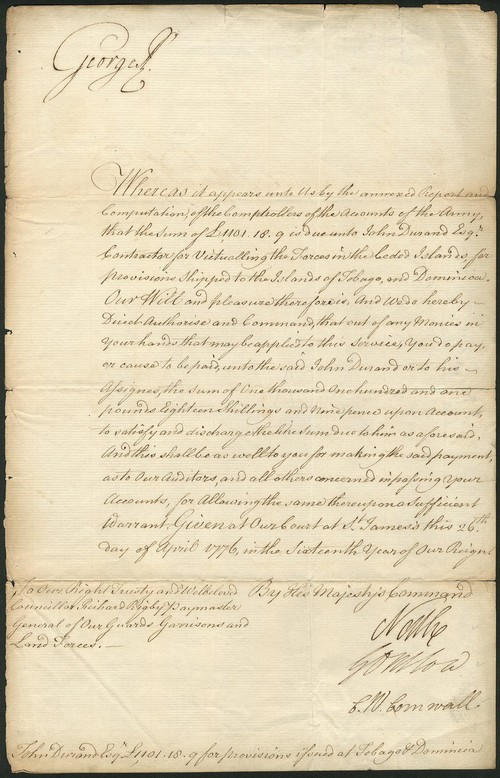 George R.
Whereas it appears unto Us by the annexed Report and
Computation, of the Comptrollers of the Accounts of the Army,
that the Sum of £1,101.18.9 is due unto John Durand Esqr.
Contractor for Victualling the Forces in the Ceded Islands, for
provisions Shipped to the Islands of Tobago, and Dominica.
Our Will and pleasure therefore is, And We do hereby
Direct Authorise and Command, that out of any Monies in
Your hands that may be applied to this Service, You do pay,
or cause to be paid, unto the said John Durand or to his
Assignes, the Sum of One thousand One hundred and one
pounds Eighteen Shillings and Nine pence upon Account,
to satisfy and discharge the like Sum due to him as aforesaid,
And this shall be as well to you for making the said payment,
as to Our Auditors, and all others concerned in passing Your
Accounts, for Allowing the same thereupon a Sufficient
Warrant. Given at Our Court at St. James's this 26th
day of April 1776, in the Sixteenth Year of Our Reign
By His Majesty's Command
North
C. W. Cornwall
To Our Right Trusty and Welbeloved
Councillor Richard Rigby Paymaster
General of Our Guards Garrisons and
Land Forces.
John Durand Esqr. £1,101.18.9 for provisions issued at Tobago & Dominica